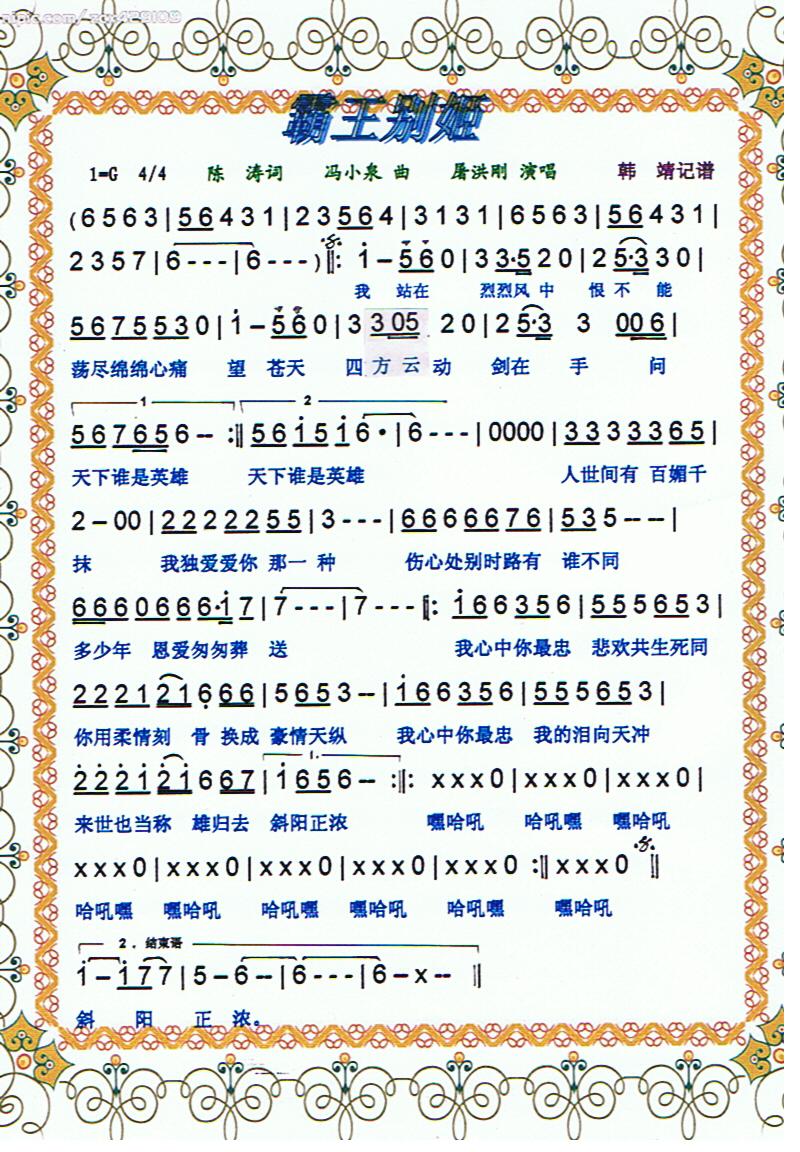 nipic.com/zcx429109
霸王别姬
1=G 4/4 陈 涛词 冯小泉 曲 屠洪刚 演唱 韩 靖记谱
(6 5 6 3 | 5 6 4 3 1 | 2 3 5 6 4 | 3 1 3 1 | 6 5 6 3 | 5 6 4 3 1 |
2 3 5 7 | 6 - - - | 6 - - - ) ‖: i - 5 6 0 | 3 3·5 2 0 | 2 5·3 3 0 |
我 站在 烈烈风 中 恨 不 能
5 6 7 5 5 3 0 | i - 5 6 0 | 3 3 0 5 2 0 | 2 5·3 3 0 0 6 |
荡尽绵绵心痛 望 苍天 四 方 云 动 剑在 手 问
1 2
5 6 7 6 5 6 - - :‖ 5 6 i 5 i 6 · | 6 - - - | 0 0 0 0 | 3 3 3 3 3 6 5 |
天下谁是英雄 天下谁是英雄 人世间有 百媚千
2 - 0 0 | 2 2 2 2 2 2 5 5 | 3 - - - | 6 6 6 6 6 7 6 | 5 3 5 - - |
抹 我独爱爱你 那一 种 伤心处别时路有 谁不同
6 6 6 0 6 6 6·i 7 | 7 - - - | 7 - - - ‖: i 6 6 3 5 6 | 5 5 5 6 5 3 |
多少年 恩爱匆匆葬 送 我心中你最忠 悲欢共生死同
2 2 2 1 2 1 6 6 6 | 5 6 5 3 - - | i 6 6 3 5 6 | 5 5 5 6 5 3 |
你用柔情刻 骨 换成 豪情天纵 我心中你最忠 我的泪向天冲
1.
2 2 2 i 2 i 6 6 7 | i 6 5 6 - - :‖: x x x 0 | x x x 0 | x x x 0 |
来世也当称 雄归去 斜阳正浓 嘿哈吼 哈吼嘿 嘿哈吼
x x x 0 | x x x 0 | x x x 0 | x x x 0 | x x x 0 :‖ x x x 0 ‖
哈吼嘿 嘿哈吼 哈吼嘿 嘿哈吼 哈吼嘿 嘿哈吼
2.结束语
i - i 7 7 | 5 - 6 - - | 6 - - - | 6 - x - - ‖
斜 阳 正 浓。